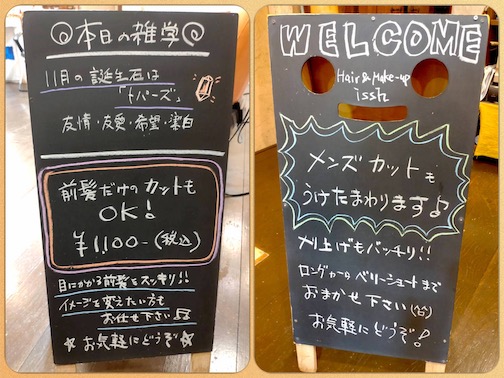 本日の雑学
11月の誕生石は
「トパーズ」
友情・友愛・希望・潔白
前髪だけのカットも
OK!
¥1,100-(税込)
目にかかる前髪をスッキリ!!
イメージを変えたい方も
お任せ下さい♫
☆お気軽にどうぞ☆
WELCOME
Hair&Make-up
issh
メンズカットも
うけたまわります♪
刈上げもバッチリ!!
ロングカラーからベリーショートまで
おまかせ下さい
お気軽にどうぞ!